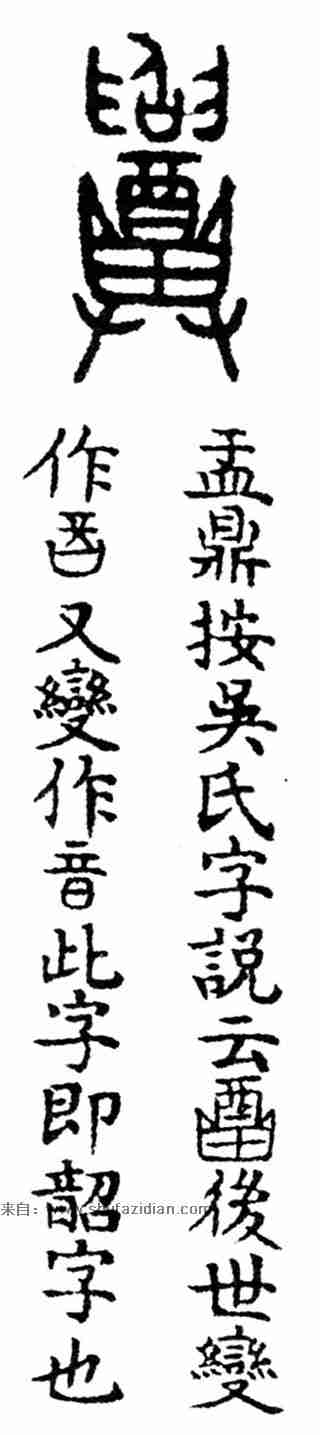 盂鼎按吳氏字説云後世變
作又變作音此字即韶字也
来自：www.shufazidian.com